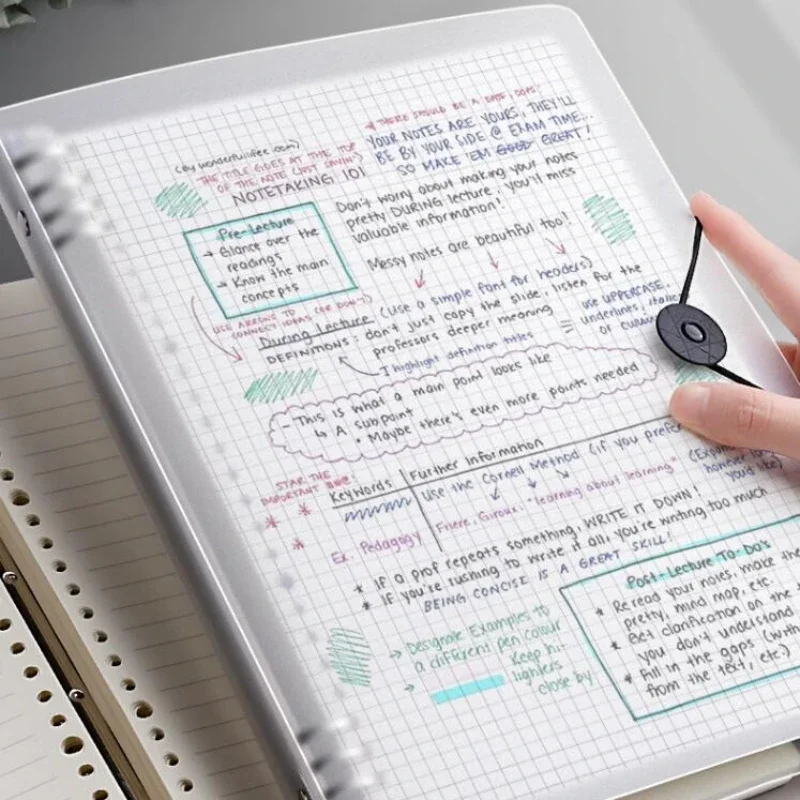 (by wonderfullifee.com)
THE TITLE GOES AT THE TOP
OF THE NOTE (JUST SAYIN')
NOTETAKING 101
THERE SHOULD BE A DATE, OOPS!
YOUR NOTES ARE YOURS, THEY'LL
BE BY YOUR SIDE @ EXAM TIME...
SO MAKE 'EM GOOD GREAT!
Pre-Lecture
→ Glance over the
readings
→ Know the main
concepts
Don't worry about making your notes
pretty DURING lecture, you'll miss
valuable information!
Messy notes are beautiful too!
USE ARROWS TO
CONNECT IDEAS (OR DON'T)
During Lecture (Use a simple font for headers)
DEFINITIONS: don't just copy the slide, listen for the
professors deeper meaning
I highlight definition titles
use UPPERCASE,
underlines, italic
or
- This is what a main point looks like
↳ A subpoint
• Maybe there's even more points needed
STAR THE
IMPORTANT
Keywords
Further Information
Use the Cornell Method (if you prefer
(Expand
however
you'd like)
Ex. Pedagogy
Friere, Giroux: "learning about learning"
* If a prof repeats something, WRITE IT DOWN!
* If you're rushing to write it all, you're writing too much
BEING CONCISE IS A GREAT SKILL!
→ Designate Examples to
a different pen colour
→ Keep hi-
lighters
close by
Post-Lecture To-Do's
* Reread your notes, make the
pretty, mind map, etc.
* Get clarification on the
you don't understand
* Fill in the gaps (with
from the text, etc.)